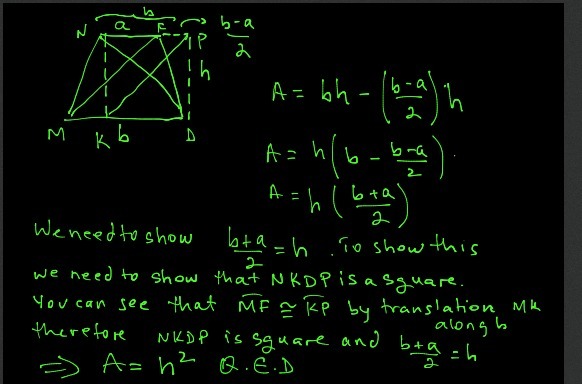 b
N a F P b-a/2
h
M K b D
A = bh - (b-a/2) h
A = h (b - b-a/2).
A = h (b+a/2)
We need to show b+a/2 = h . To show this
we need to show that NKDP is a square.
You can see that MF ≅ KP by translation MK
along b
therefore NKDP is square and b+a/2 = h
⇒ A = h² Q.E.D